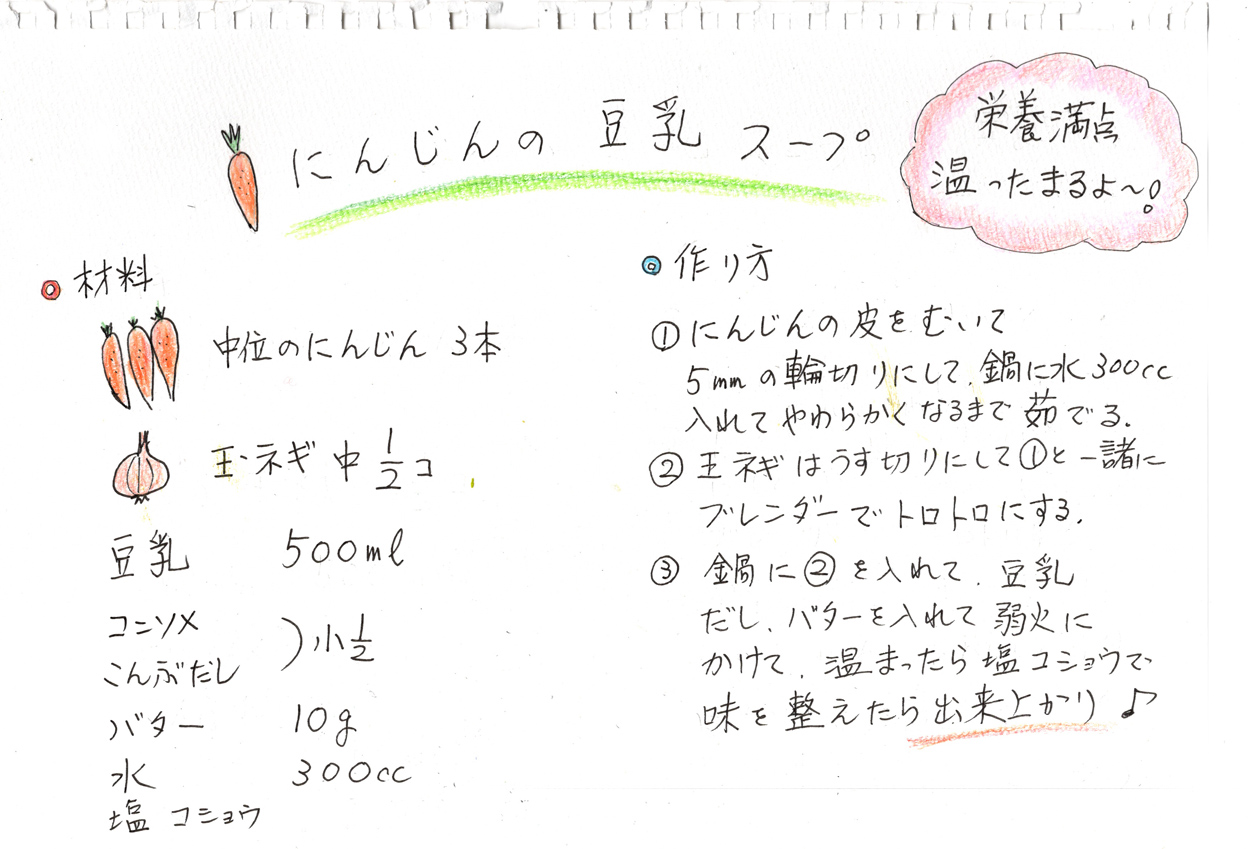 にんじんの 豆乳 スープ
栄養満点
温ったまるよ〜!
材料
中位のにんじん 3本
玉ネギ 中 1/2コ
豆乳 500ml
コンソメ
こんぶだし
)小1/2
バター 10g
水 300cc
塩 コショウ
作り方
① にんじんの 皮を むいて
5mmの輪切りにして、鍋に水300cc
入れて やわらかく なるまで 茹でる.
② 玉ネギはうす切りにして①と一諸に
ブレンダーでトロトロにする.
③ 鍋に②を入れて、豆乳
だし、バターを入れて 弱火に
かけて、温まったら塩コショウで
味を整えたら出来上がり♪